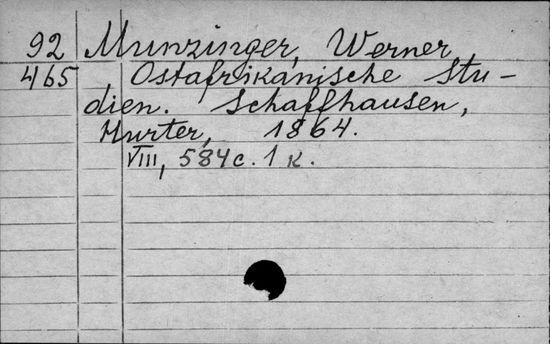 92 Munzinger, Werner
465 Ostafrikanische Stu-
dien. Schaffhausen,
Hurter, 1864.
VIII, 584 c. 1 к.